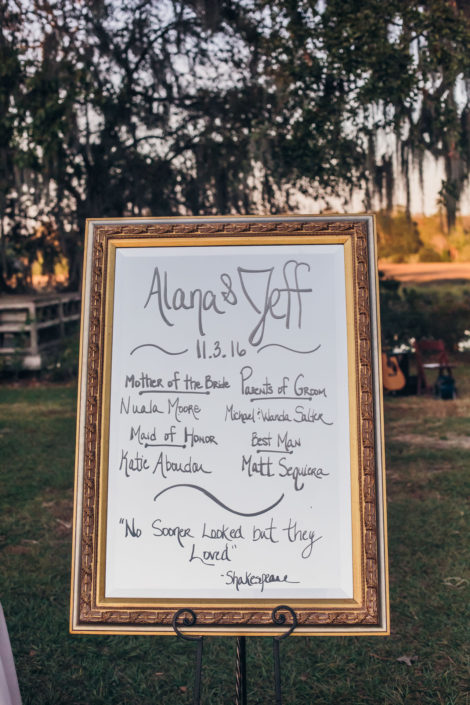 Alana & Jeff
11.3.16
Mother of the Bride
Nuala Moore
Parents of Groom
Michael + Wanda Salter
Maid of Honor
Katie Aboudar
Best Man
Matt Sequiera
"No Sooner Looked but they
Loved"
-Shakespeare